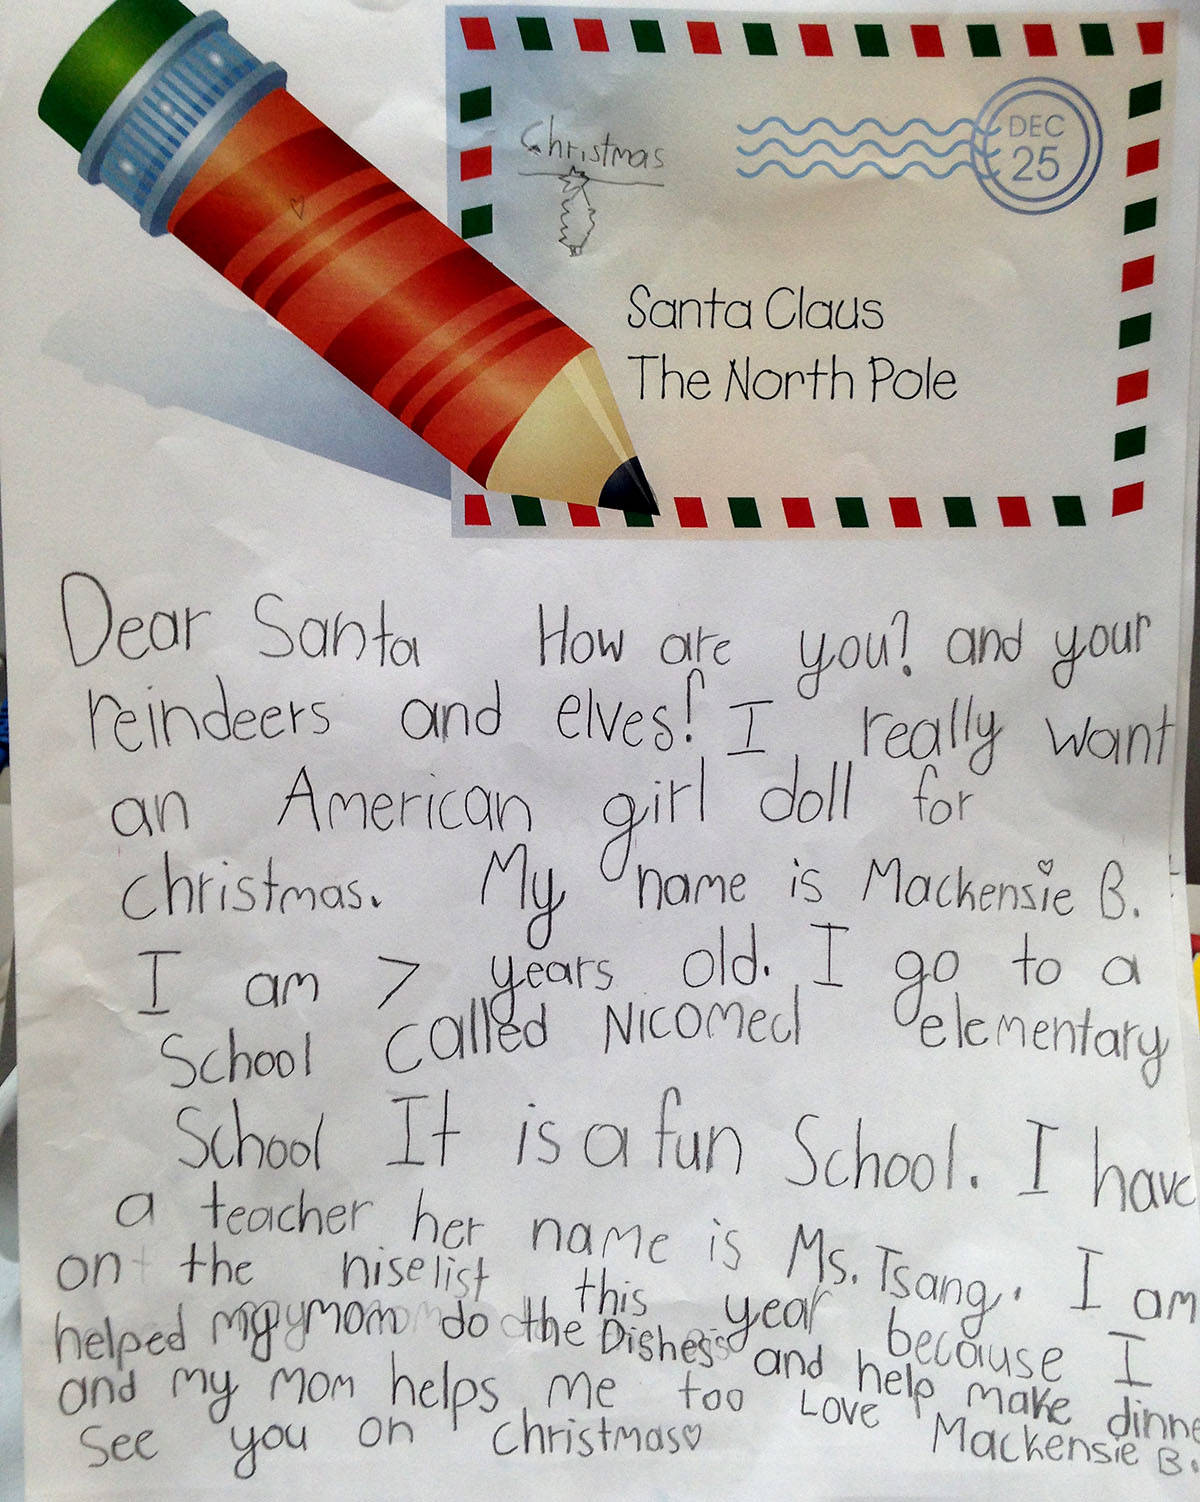 Christmas
DEC
25
Santa Claus
The North Pole
Dear Santa How are you? and your
reindeers and elves! I really want
an American girl doll for
christmas. My name is Mackensie B.
I am 7 years old. I go to a
School called Nicomecl elementary
School It is a fun School. I have
a teacher her name is Ms. Tsang. I am
on the niselist this year because I
helped my mom do the Dishes and help make dinne
and my mom helps me too Love Mackensie B.
See you on christmas♡